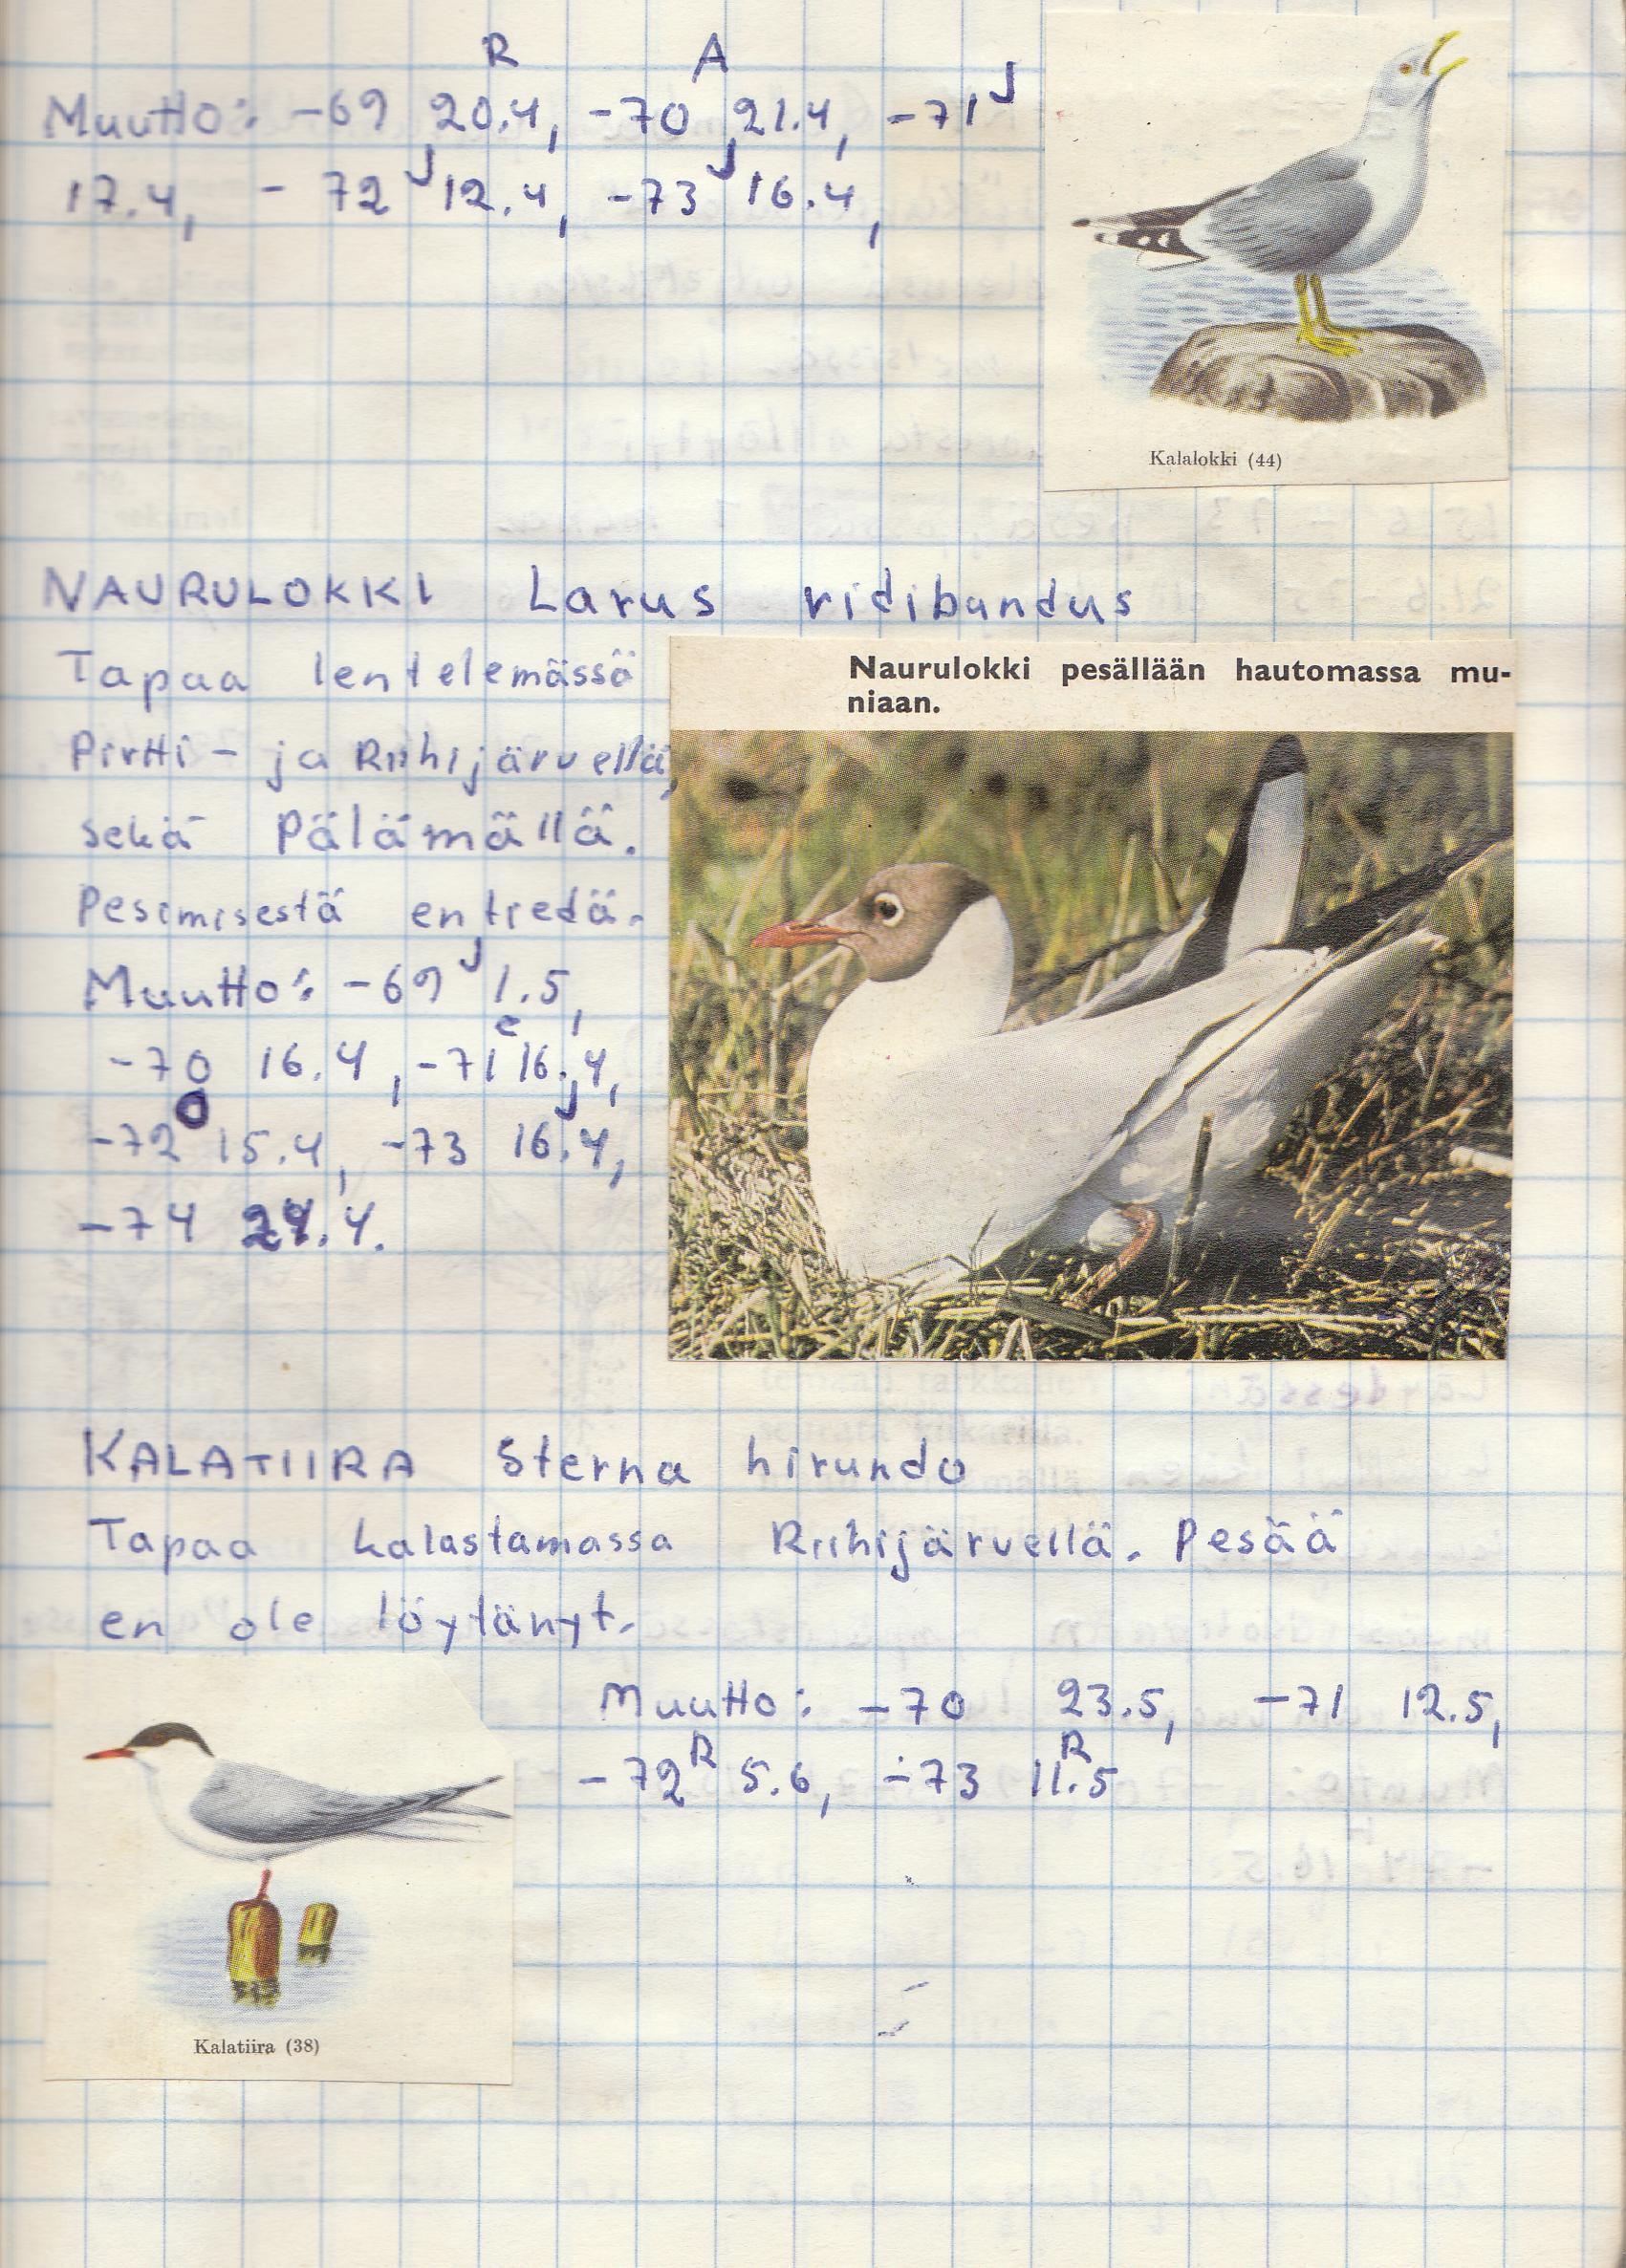 R A
Muutto: -69 20.4, -70 21.4, -71 J
17.4, - 72 J 12.4, -73 J 16.4,
Kalalokki (44)
NAURULOKKI Larus ridibundus
Naurulokki pesällään hautomassa mu-
niaan.
Tapaa lentelemässä
Pirtti- ja Riihijärvellä,
sekä Pälämällä.
Pesimisestä en tiedä.
Muutto: -69 J 1.5,
-70 16.4, -71 16.4,
-72 15.4, -73 16.J4,
-74 .4.
KALATIIRA Sterna hirundo
Tapaa kalastamassa Riihijärvellä. Pesää
en ole löytänyt.
Muutto: -70 23.5, -71 12.5,
-72 R 5.6, -73 11.R5
Kalatiira (38)